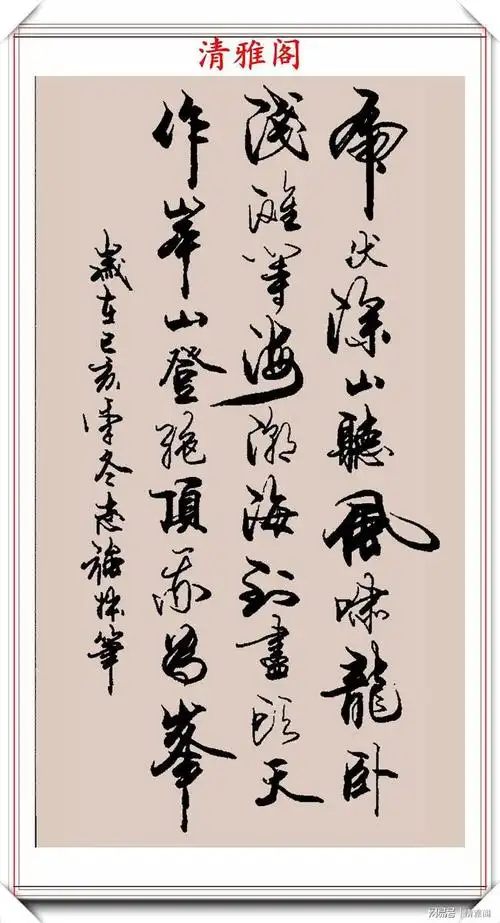 清雅阁
虎伏深山聽風嘯龍卧
淺灘等海潮海到盡頭天
作岸山登絶頂我為峯
歲在己亥季冬志福筆
网易号 | 清雅阁